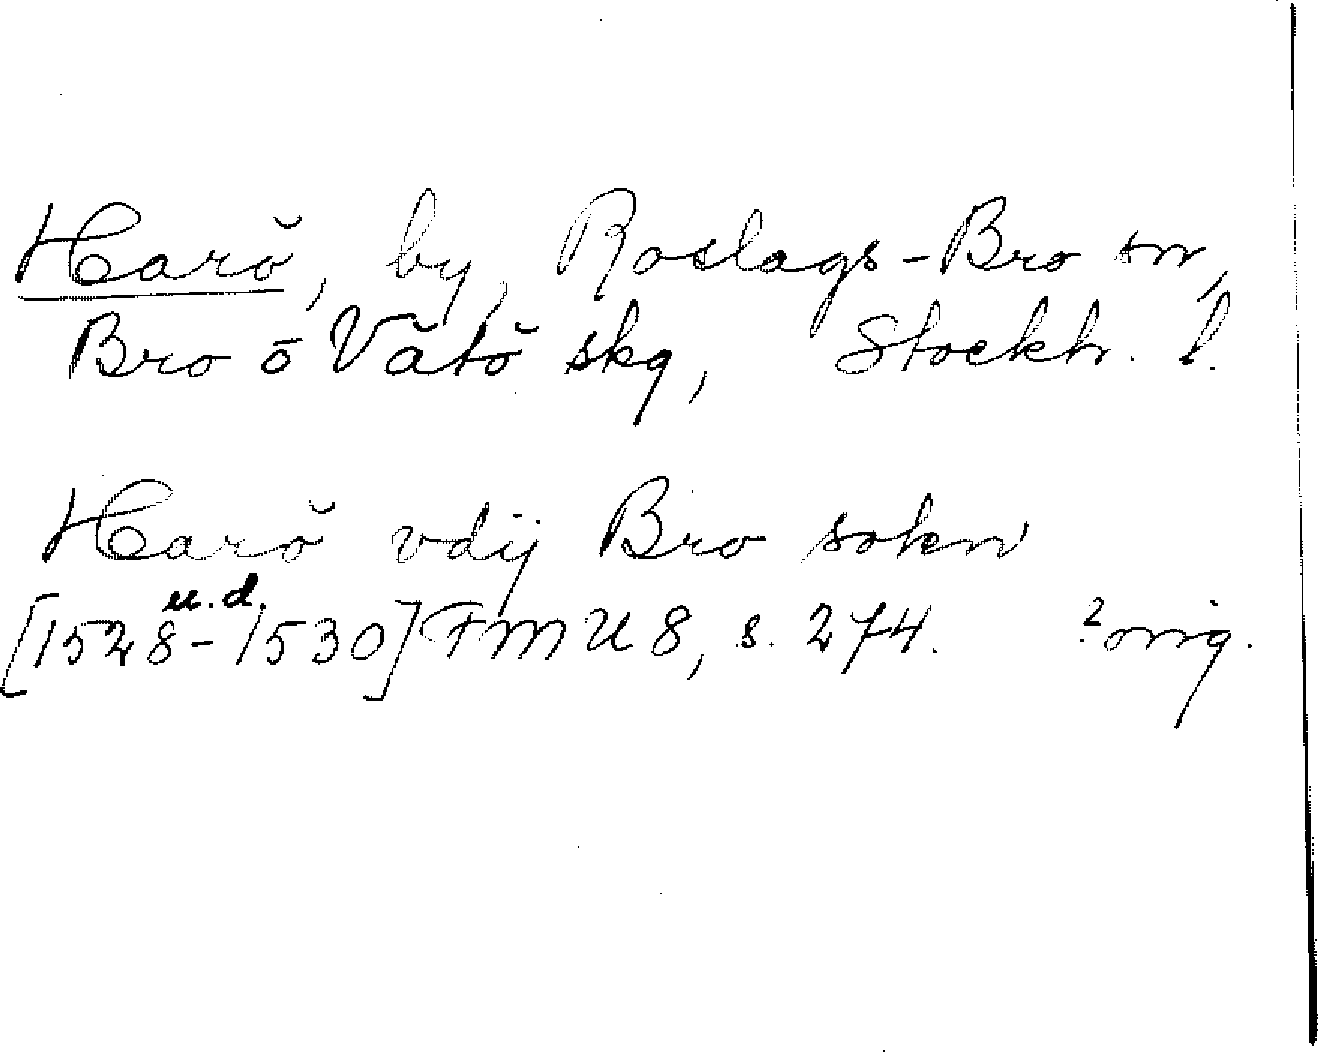 Harö, by, Roslags-Bro sn,
Bro o Vätö skg, Stockh. l.
Harö vdij Bro sokn
u.d.
[1528-1530] FMU 8, s. 274. ? orig.